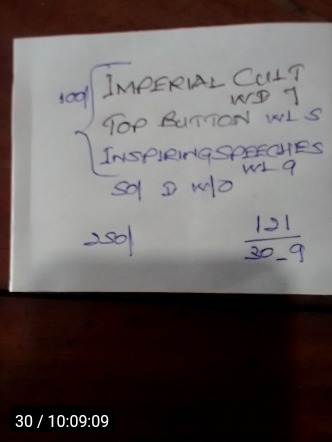 100/ IMPERIAL CULT
WD 7
TOP BUTTON WL 5
INSPIRING SPEECHES
WL 9
50/ D W/O
250/
121
30-9
30 / 10:09:09